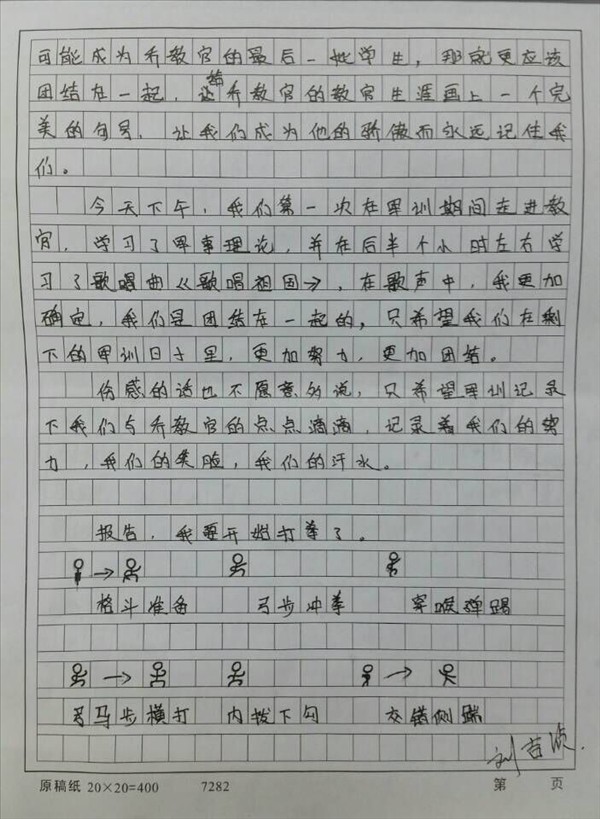 可能成为乔教官的最后一批学生，那就更应该
团结在一起，给乔教官的教官生涯画上一个完
美的句号，让我们成为他的骄傲而永远记住我
们。
今天下午，我们第一次在军训期间走进教
官，学习了军事理论，并在后半个小时左右学
习了歌唱曲《歌唱祖国》，在歌声中，我更加
确定，我们是团结在一起的，只希望我们在剩
下的军训日子里，更加努力，更加团结。
伤感的话也不愿意多说，只希望军训记录
下我们与乔教官的点点滴滴，记录着我们的努
力，我们的笑脸，我们的汗水。
报告，我要开始打拳了。
格斗准备 弓步冲拳 穿喉弹踢
马步横打 内拨下勾 交错侧踹
刘吉
原稿纸 20×20=400 7282 第 页